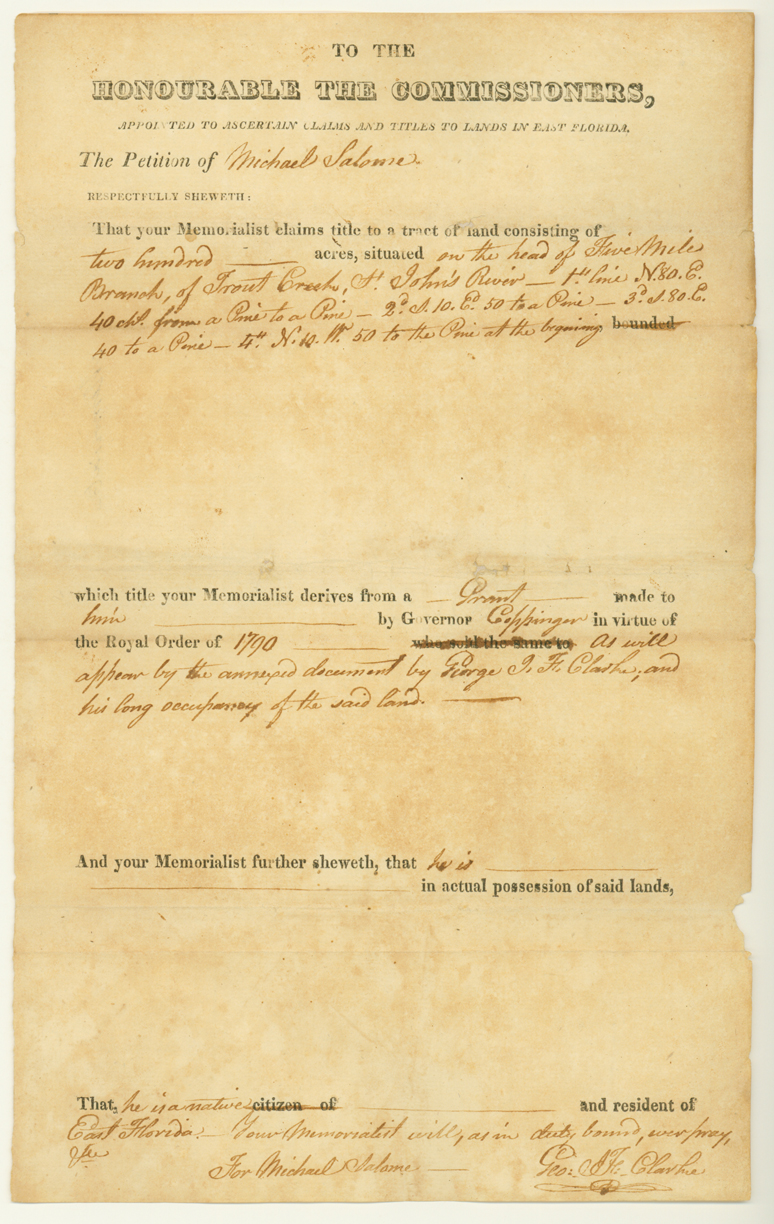 TO THE
HONOURABLE THE COMMISSIONERS,
APPOINTED TO ASCERTAIN CLAIMS AND TITLES TO LANDS IN EAST FLORIDA.
The Petition of Michael Salome.
RESPECTFULLY SHEWETH:
That your Memorialist claims title to a tract of land consisting of
two hundred acres, situated on the head of Five Mile
Branch, of Trout Creek, St. John's River — 1st line N.80.E.
40 chs. from a Pine to a Pine — 2d S.10.E. 50 to a Pine — 3d S.80.E.
40 to a Pine — 4th N.10.W. 50 to the Pine at the begining bounded
which title your Memorialist derives from a — Grant — made to
him — by Governor Coppinger in virtue of
the Royal Order of 1790 — who sold the same to As will
appear by the annexed document by George J. F. Clarke, and
his long occupancy of the said land. —
And your Memorialist further sheweth, that he is —
— in actual possession of said lands,
That, he is a native citizen of — and resident of
East Florida. — Your Memorialist will, as in duty bound, ever pray,
&c
For Michael Salome — Geo: J. F. Clarke